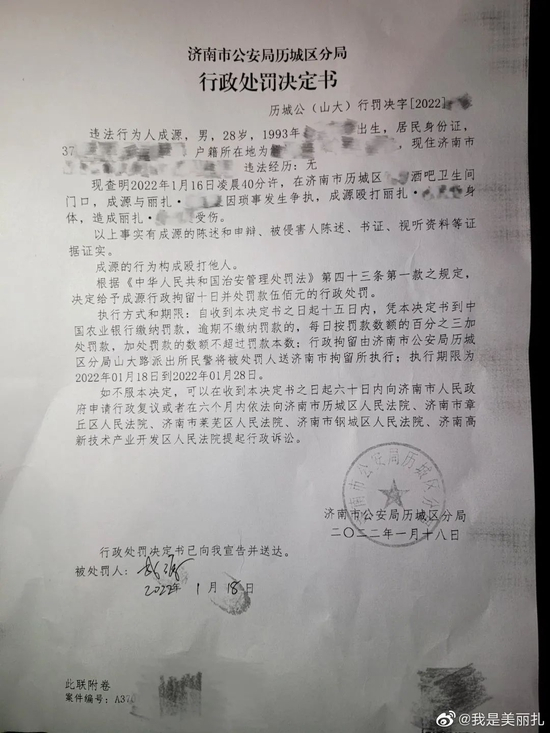 济南市公安局历城区分局
行政处罚决定书
历城公（山大）行罚决字[2022]
违法行为人成源，男，28岁，1993年 出生，居民身份证，
37 户籍所在地为 ，现住济南市
违法经历：无
现查明2022年1月16日凌晨40分许，在济南市历城区 酒吧卫生间
门口，成源与丽扎· 因琐事发生争执，成源殴打丽扎· 身
体，造成丽扎· 受伤。
以上事实有成源的陈述和申辩、被侵害人陈述、书证、视听资料等证
据证实。
成源的行为构成殴打他人。
根据《中华人民共和国治安管理处罚法》第四十三条第一款之规定，
决定给予成源行政拘留十日并处罚款伍佰元的行政处罚。
执行方式和期限：自收到本决定书之日起十五日内，凭本决定书到中
国农业银行缴纳罚款，逾期不缴纳罚款的，每日按罚款数额的百分之三加
处罚款，加处罚款的数额不超过罚款本数；行政拘留由济南市公安局历城
区分局山大路派出所民警将被处罚人送济南市拘留所执行；执行期限为
2022年01月18日到2022年01月28日。
如不服本决定，可以在收到本决定书之日起六十日内向济南市人民政
府申请行政复议或者在六个月内依法向济南市历城区人民法院、济南市章
丘区人民法院、济南市莱芜区人民法院、济南市钢城区人民法院、济南高
新技术产业开发区人民法院提起行政诉讼。
济南市公安局历城区分局
济南市公安局历城区分局
二〇二二年一月十八日
行政处罚决定书已向我宣告并送达。
被处罚人：
2022年 1月 18日
此联附卷
案件编号：A370
@我是美丽扎